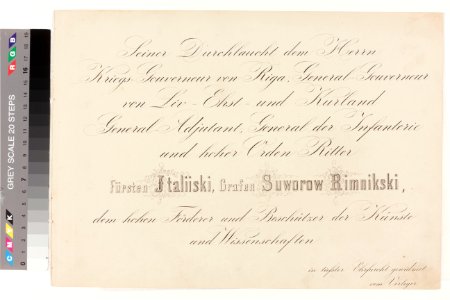 Seiner Durchlaucht dem Herrn
Kriegs-Gouverneur von Riga, General-Gouverneur
von Liv- Ehst- und Kurland
General-Adjutant, General der Infanterie
und hoher Orden Ritter
Fürsten Italiiski, Grafen Suworow Rimnikski,
dem hohen Förderer und Beschützer der Künste
und Wissenschaften
in tiefster Ehrfurcht gewidmet
vom Verleger
GREY SCALE 20 STEPS
R G B
C M K